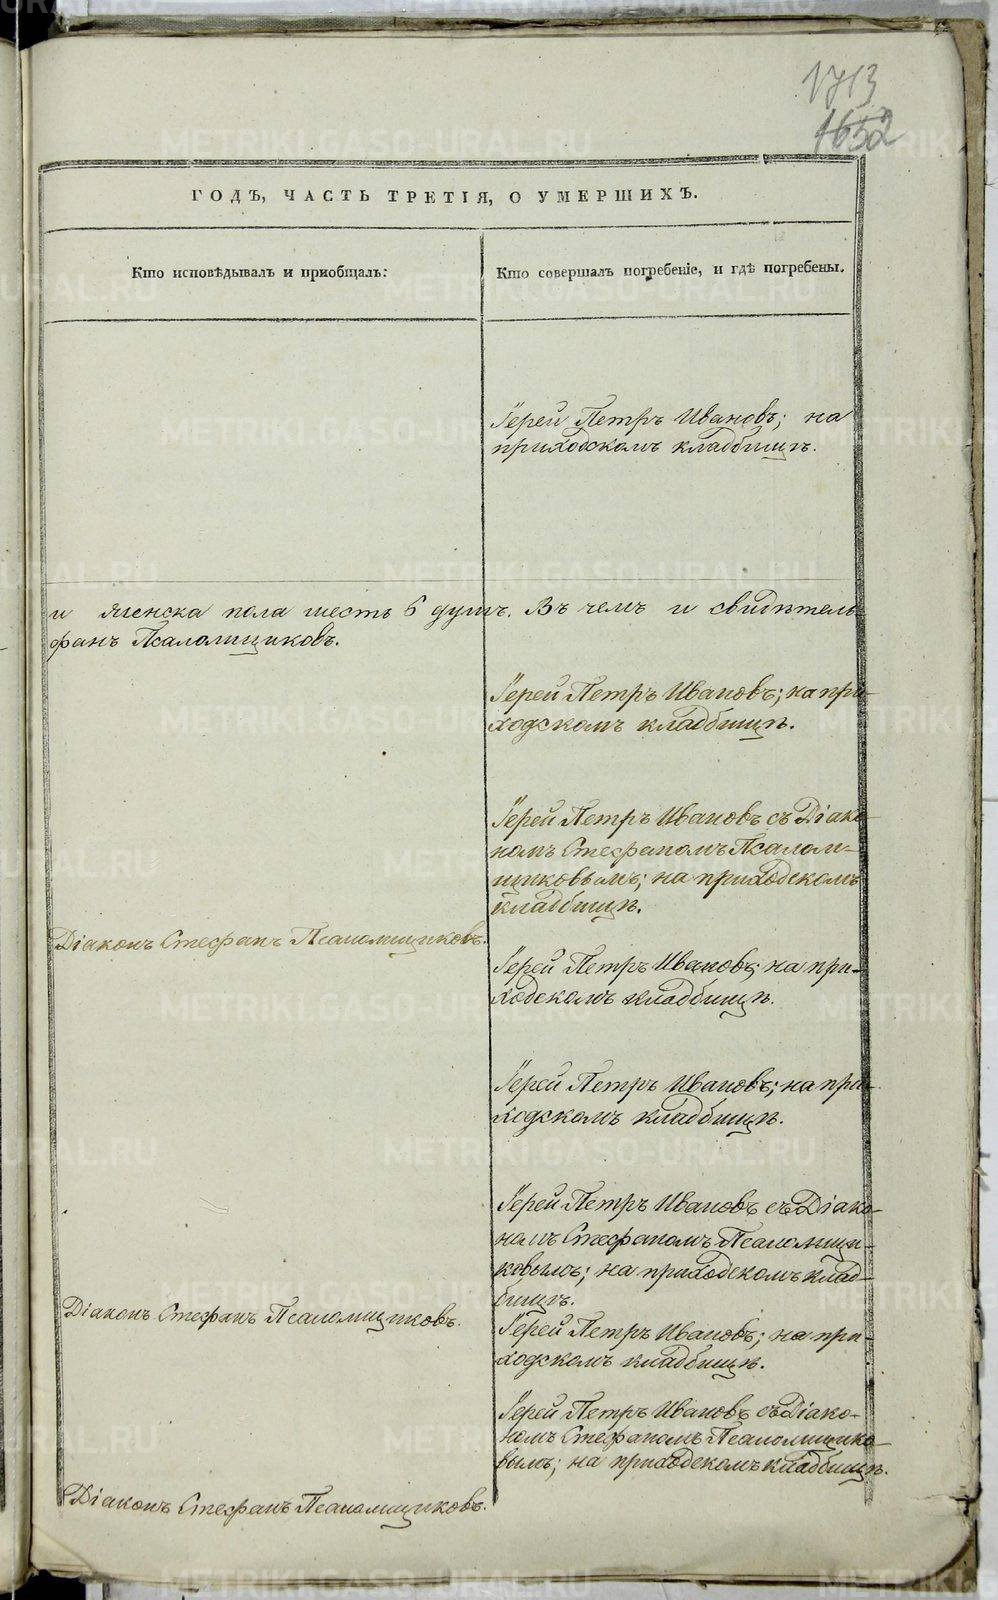 1713
1652
ГОДЪ, ЧАСТЬ ТРЕТІЯ, О УМЕРШИХЪ.
Кто исповѣдывалъ и пріобщалъ:
Кто совершалъ погребеніе, и гдѣ погребены.
Іерей Петръ Ивановъ; на
приходскомъ кладбищѣ.
и женска пола шесть 6 душъ. Въ чемъ и свидѣтель-
фанъ Псаломщиковъ.
Іерей Петръ Ивановъ; на при-
ходскомъ кладбищѣ.
Іерей Петръ Ивановъ съ Діако-
номъ Стефаномъ Псалом-
щиковымъ; на приходскомъ
кладбищѣ.
Діаконъ Стефанъ Псаломщиковъ.
Іерей Петръ Ивановъ; на при-
ходскомъ кладбищѣ.
Іерей Петръ Ивановъ; на при-
ходскомъ кладбищѣ.
Іерей Петръ Ивановъ съ Діако-
номъ Стефаномъ Псаломщи-
ковымъ; на приходскомъ клад-
бищѣ.
Діаконъ Стефанъ Псаломщиковъ.
Іерей Петръ Ивановъ; на при-
ходскомъ кладбищѣ.
Іерей Петръ Ивановъ съ Діако-
номъ Стефаномъ Псаломщико-
вымъ; на приходскомъ кладбищѣ.
Діаконъ Стефанъ Псаломщиковъ.
METRIKI.GASO-URAL.RU